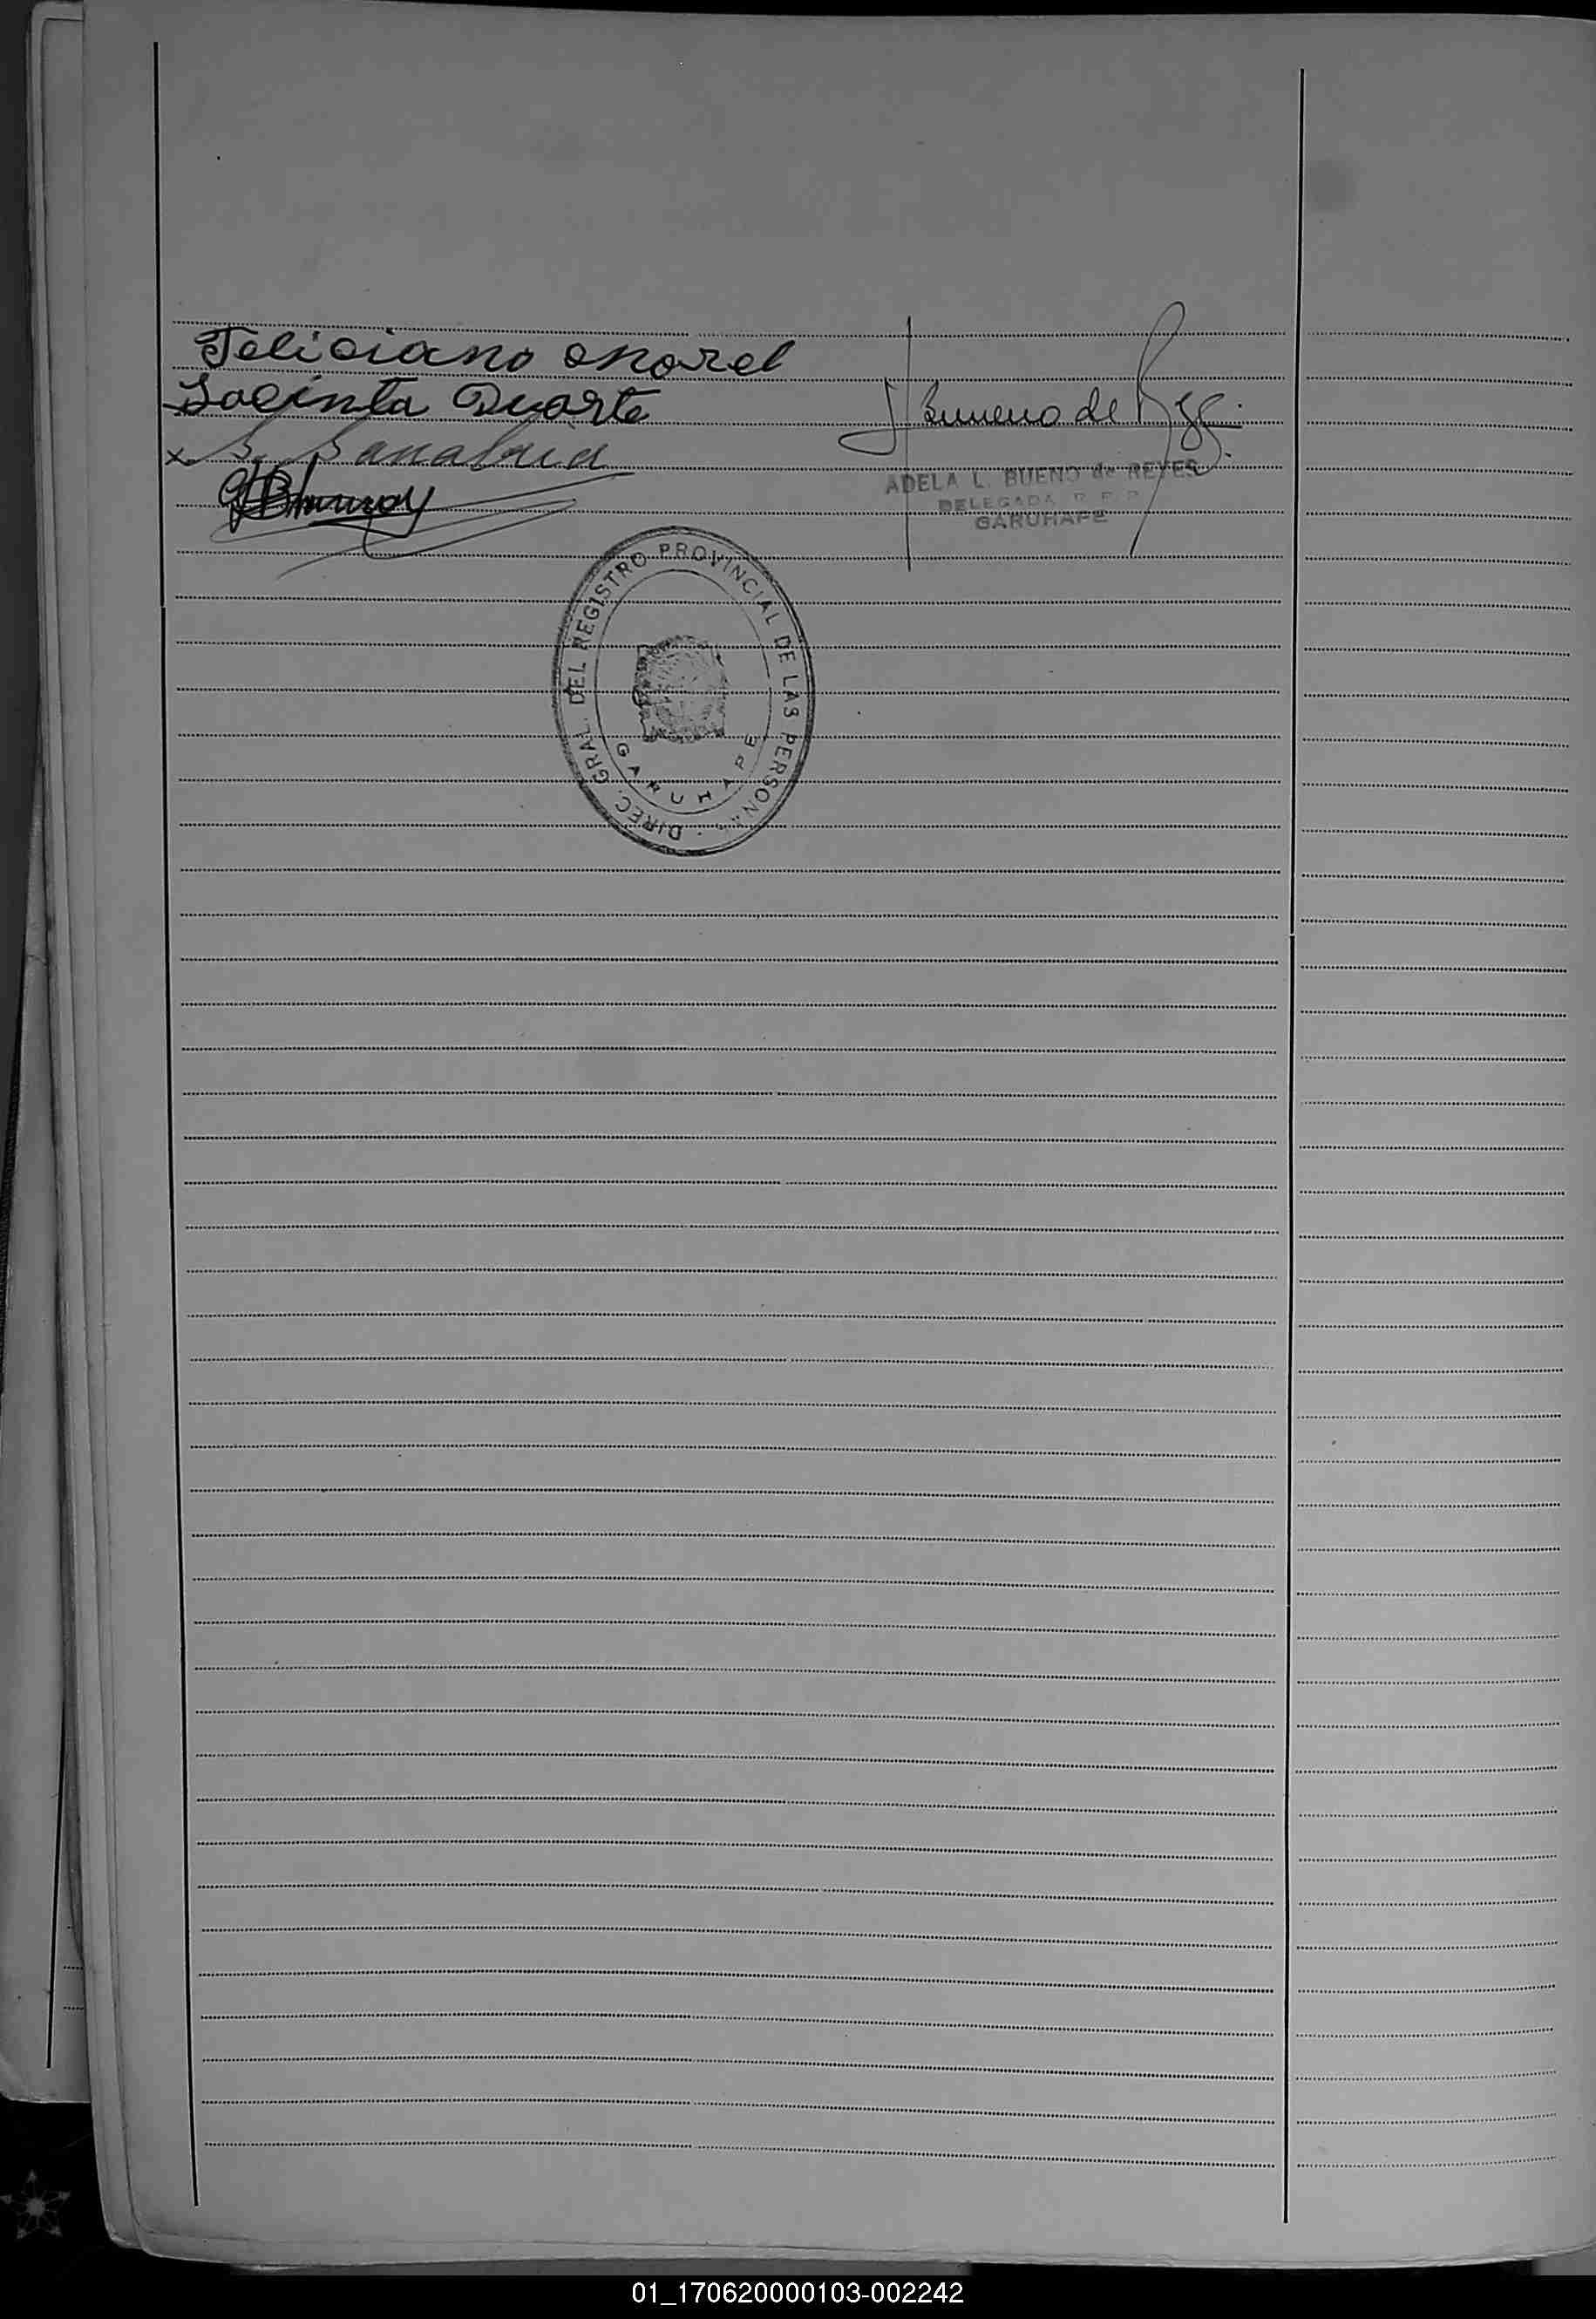 Feliciano Morel
Jacinta Duarte
x S. Sanabria
Bueno de
ADELA L. BUENO de REYES
DELEGADA R. P. P.
GARUHAPE
DIREC. GRAL. DEL REGISTRO PROVINCIAL DE LAS PERSONAS
GARUHAPE
01_170620000103-002242